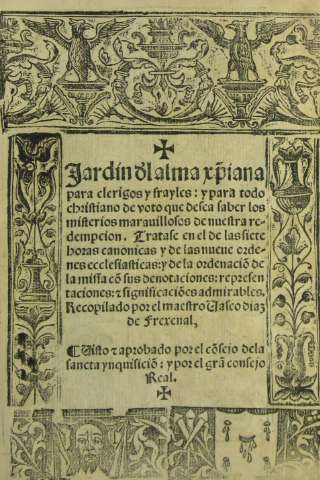 ✠
Jardin ðl alma xp̃iana
para clerigos y frayles: y para todo
christiano de voto que dessea saber los
misterios marauillosos de nuestra re-
dempcion. Tratase en el de las siete
horas canonicas y de las nueue orde-
nes ecclesiasticas: y de la ordenaciõ de
la missa cõ sus denotaciones: represen-
taciones: ⁊ significaciões admirables.
Recopilado por el maestro Uasco diaz
de Frexenal,
¶ Uisto ⁊ aprobado por el cõsejo dela
sancta ynquisiciõ: y por el grã consejo
Real.
✠